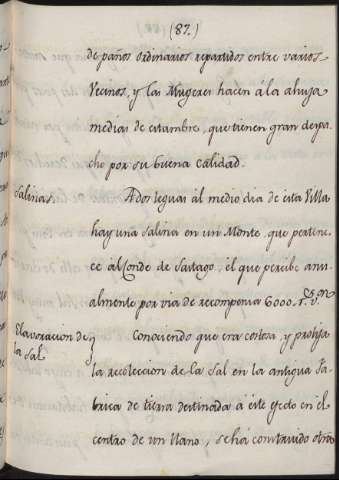 (87.)
de paños ordinarios repartidos entre varios
Vecinos, y las Mugeres hacen á la ahuja
medias de estambre, que tienen gran despa-
cho por su buena calidad.
Salinas. A dos leguas al medio dia de esta Villa
hay una salina en un Monte, que pertene-
ce al Conde de Sastago, el que percibe anu-
almente por via de recompensa 6000. r.s v.n
Elavoracion de la Sal Conociendo que era costosa, y prolija
la recoleccion de la Sal en la antigua Fa-
brica de tierra destinada á este efecto en el
centro de un llano, se há construido otra